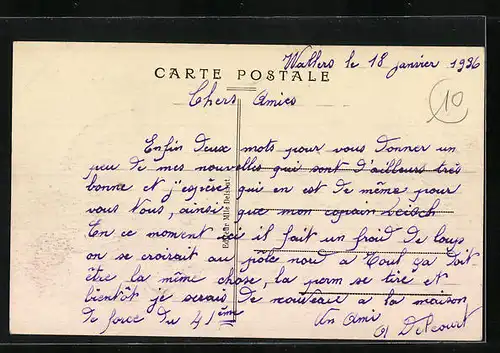 Wallers le 18 janvier 1936
CARTE POSTALE
10
Chers Amies
Enfin deux mots pour vous donner un
peu de mes nouvelles qui sont d'ailleurs très
bonne et j'espère qui en est de même pour
vous tous, ainsi que mon copain
En ce moment ici il fait un froid de loups
on se croirait au pôle nord a Toul ça doit
être la même chose, la perm se tire et
bientôt je serais de nouveau a la maison
de force du 41ème
Un Ami
Delcourt
Editeur Mlle Delsaut